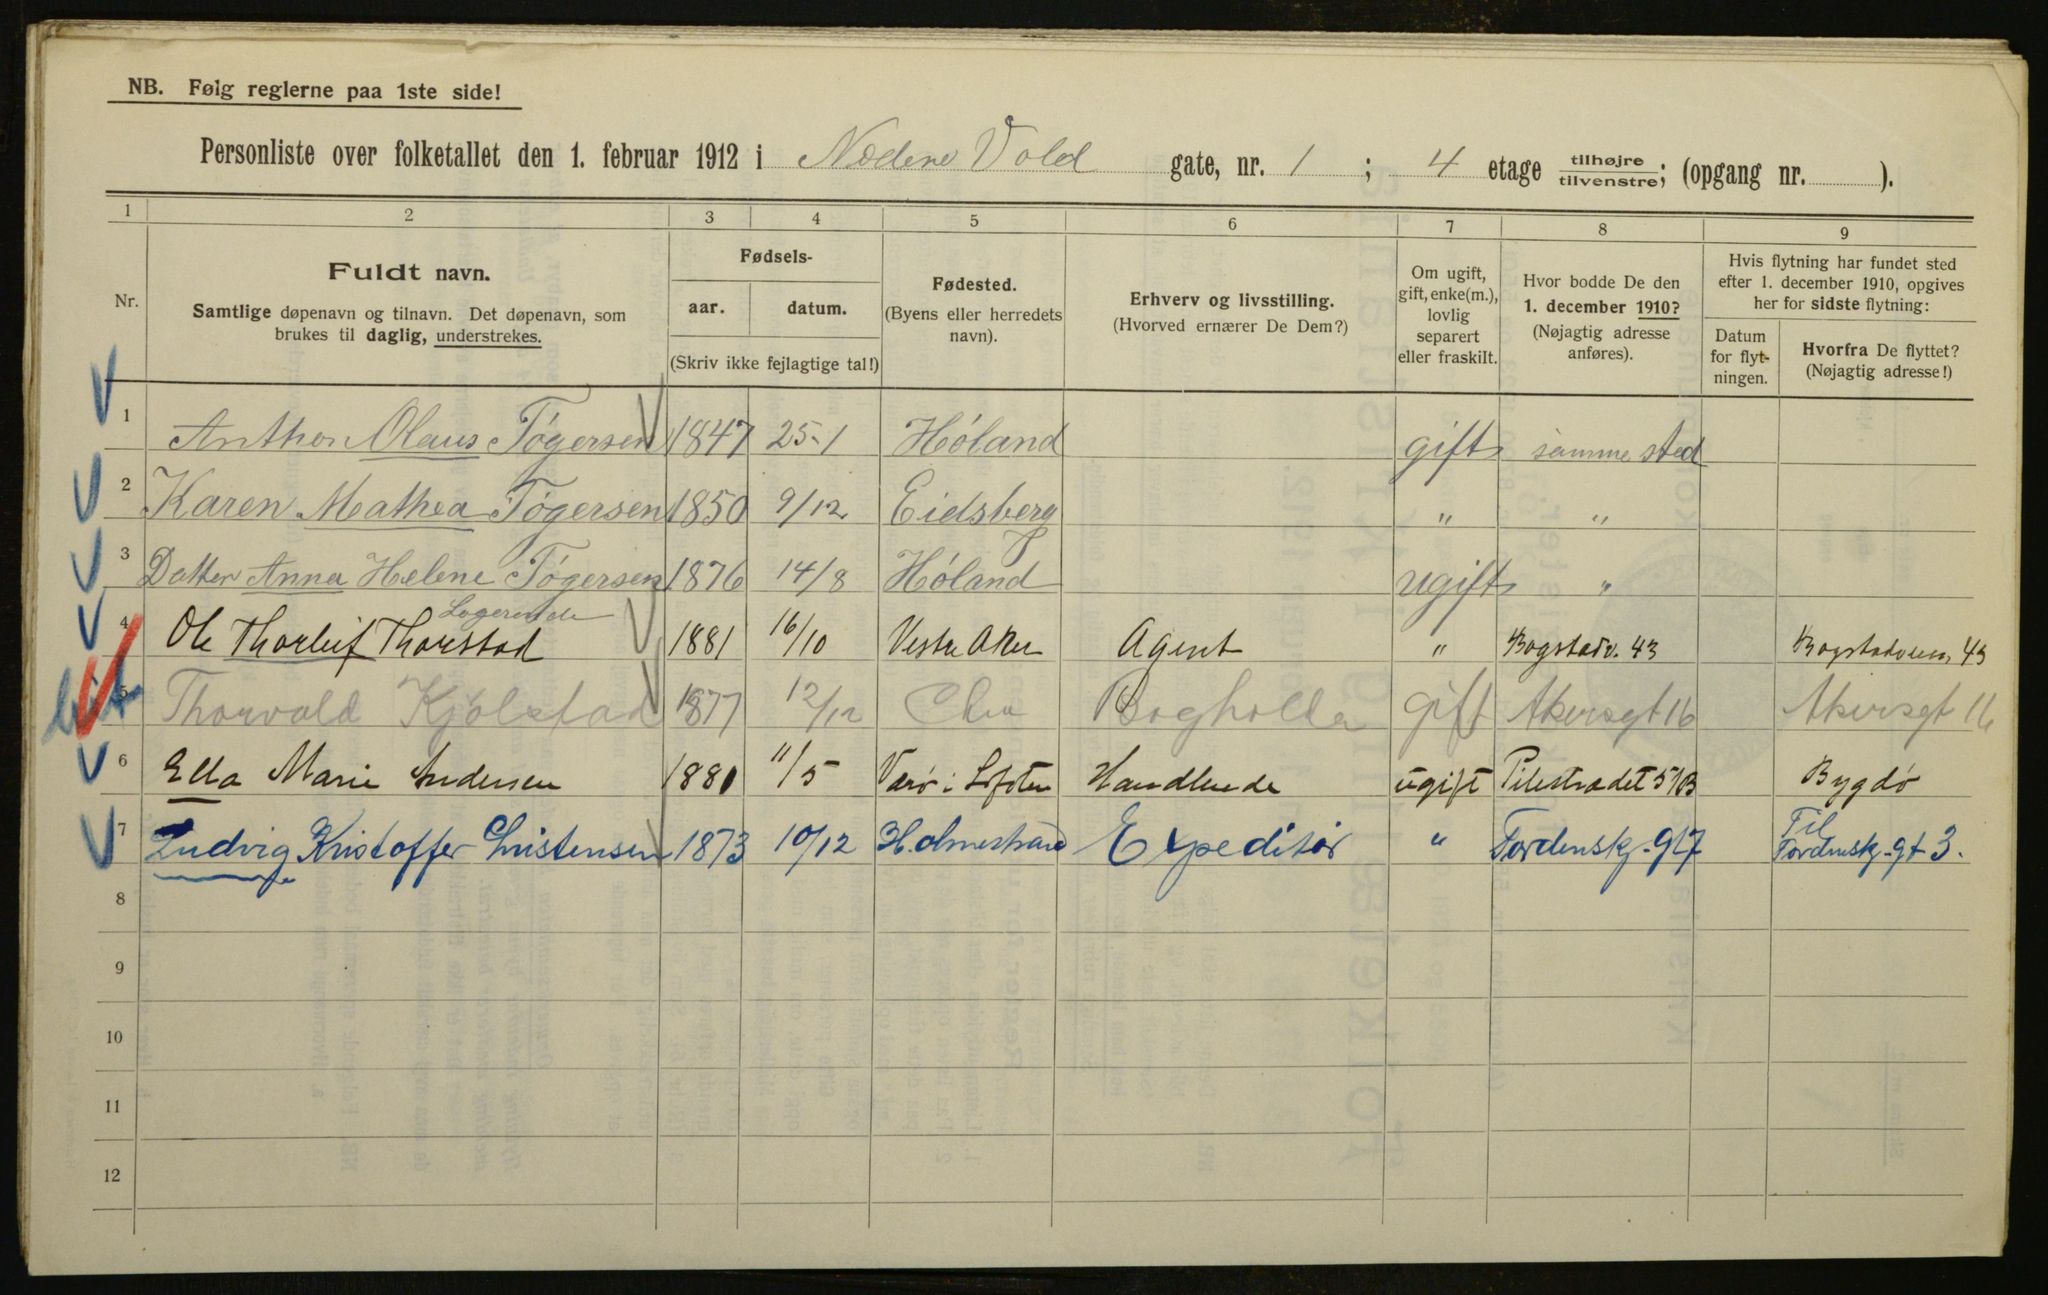 NB. Følg reglerne paa 1ste side!
Personliste over folketallet den 1. februar 1912 i Nedere Vold gate, nr. 1 ; 4 etage tilhøjre/tilvenstre; (opgang nr. ).
1 2 3 4 5 6 7 8 9
Nr.
Fuldt navn.
Samtlige døpenavn og tilnavn. Det døpenavn, som
brukes til daglig, understrekes.
Fødsels-
aar. datum.
(Skriv ikke fejlagtige tal!)
Fødested.
(Byens eller herredets
navn).
Erhverv og livsstilling.
(Hvorved ernærer De Dem?)
Om ugift,
gift, enke(m.),
lovlig
separert
eller fraskilt.
Hvor bodde De den
1. december 1910?
(Nøjagtig adresse
anføres).
Hvis flytning har fundet sted
efter 1. december 1910, opgives
her for sidste flytning:
Datum
for flyt-
ningen.
Hvorfra De flyttet?
(Nøjagtig adresse!)
1 Anthon Olaus Tøgersen 1847 25-1 Høland gift samme sted
2 Karen Mathea Tøgersen 1850 9/12 Eidsberg " "
3 Datter Anna Helene Tøgersen 1876 14/8 Høland ugift "
Logerende
4 Ole Thorleif Thorstad 1881 16/10 Vestre Aker Agent " Bogstadv. 43 Bogstadveien 43
5 Thorvald Kjølstad 1877 12/12 Chra Bogholder gift Akersgt 16 Akersgt 16
6 Ella Marie Andersen 1880 11/5 Værø i Lofoten Handlende ugift Pilestrædet 51B Bygdø
7 Ludvig Kristoffer Christensen 1873 10/12 Holmestrand Expeditør " Tordenskj.-gt 7 Til
Tordenskj.-gt 3.
8
9
10
11
12